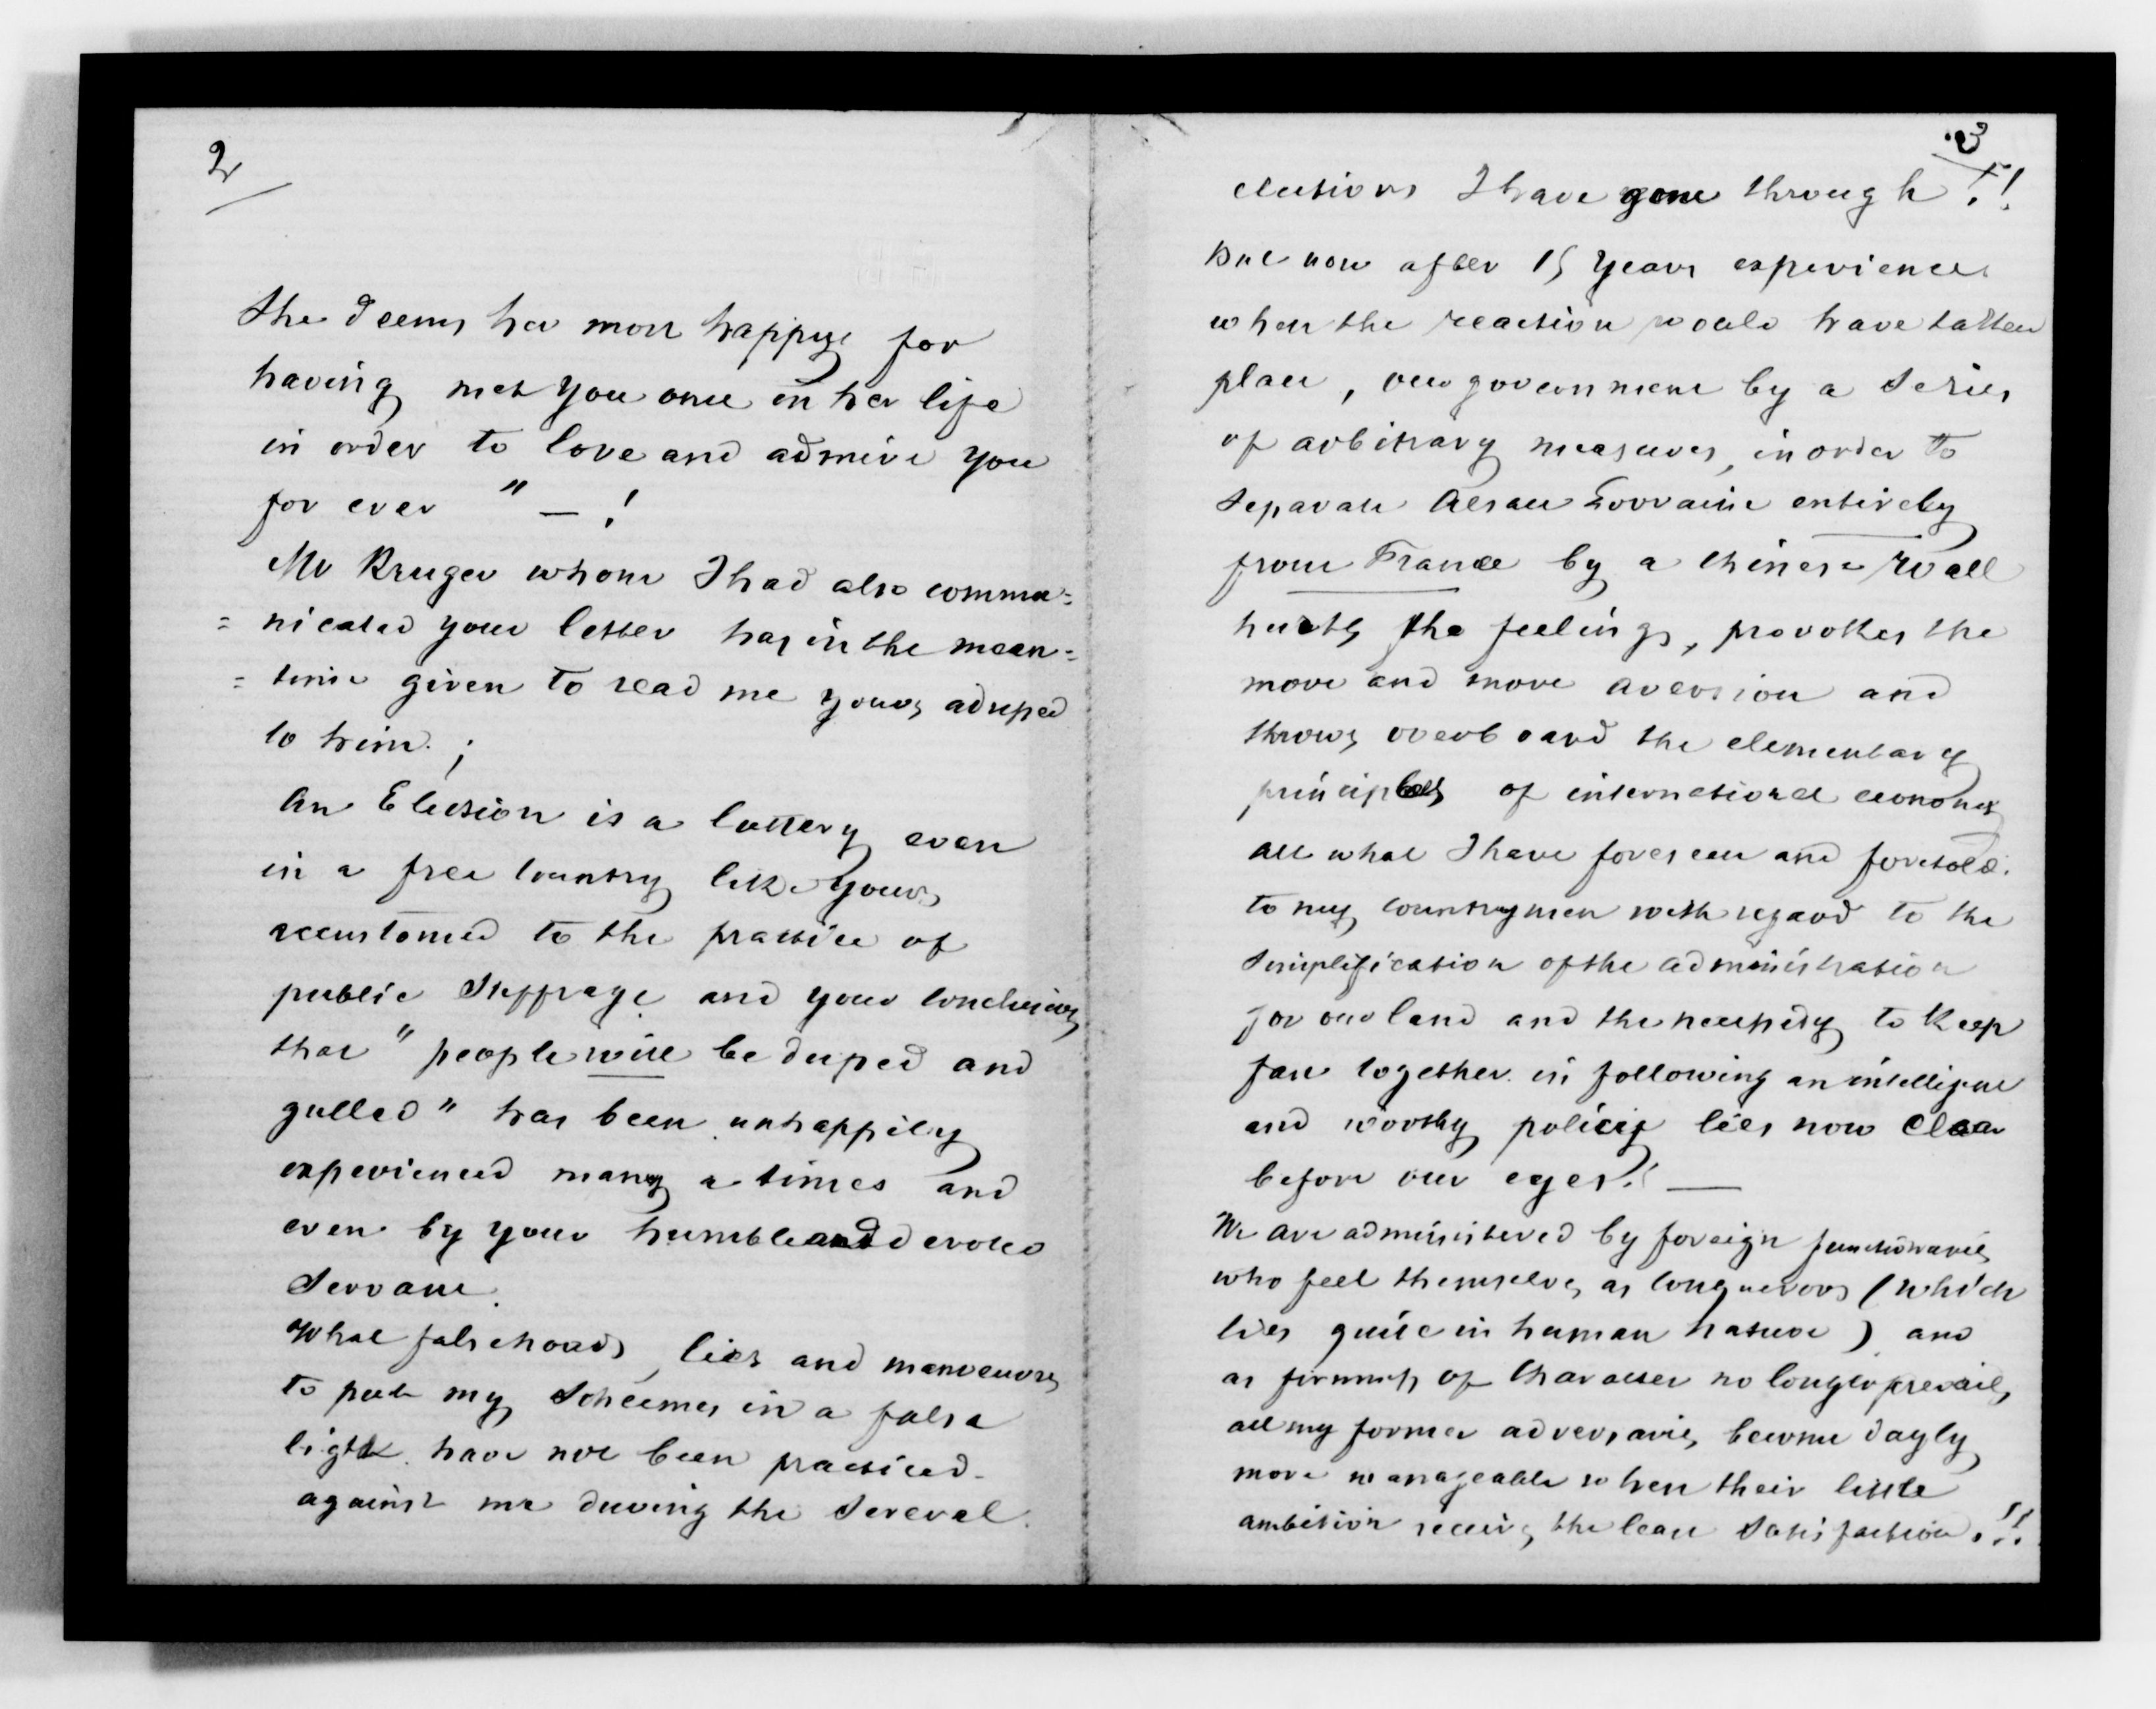 2
She deems her most happy for
having met you once in her life
in order to love and admire you
for ever " — !
Mr Kruger whom I had also commu=
= nicated your letter has in the mean=
= time given to read me yours adressed
to him. ;
An Election is a lottery even
in a free country like yours
accustomed to the practice of
public suffrage and your conclusions
that " people will be duped and
gulled " has been unhappily
experienced many a times and
even by your humble and devoted
servant.
What falsehoods, lies and manoeuvres
to put my schemes in a false
light have not been practiced
against me during the several
3
elections I have gone through !!
But now after 15 years experience
when the reaction would have taken
place, our government by a series
of arbitrary measures, in order to
separate Alsace Lorraine entirely
from France by a chinese Wall
hurts the feelings, provokes the
more and more aversion and
throws overboard the elementary
principles of international economy
all what I have foreseen and foretold
to my countrymen with regard to the
simplification of the administration
for our land and the necessity to keep
fast together in following an intelligent
and worthy policy lies now clear
before our eyes! —
We are administered by foreign functionaries
who feel themselves as conquerors (which
lies quite in human nature) and
as firmness of character no longer prevails,
all my former adversaries become dayly
more manageable when their little
ambition receives the least satisfaction.!!